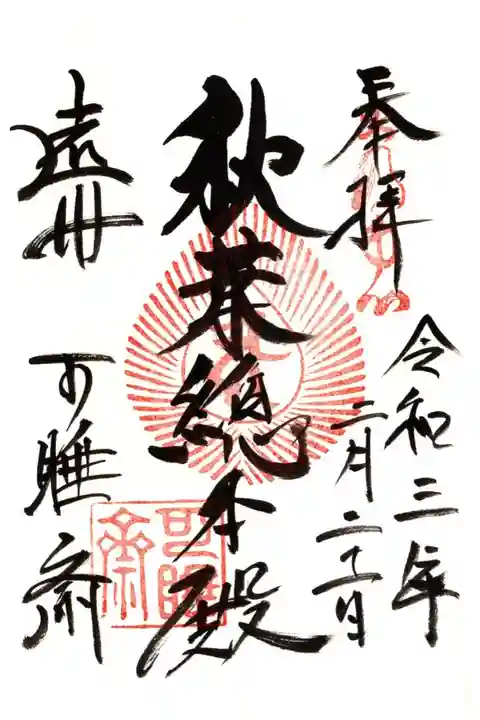 奉拝
令和三年
二月二十日
秋葉總本殿
遠州
可睡斎
可睡
齋